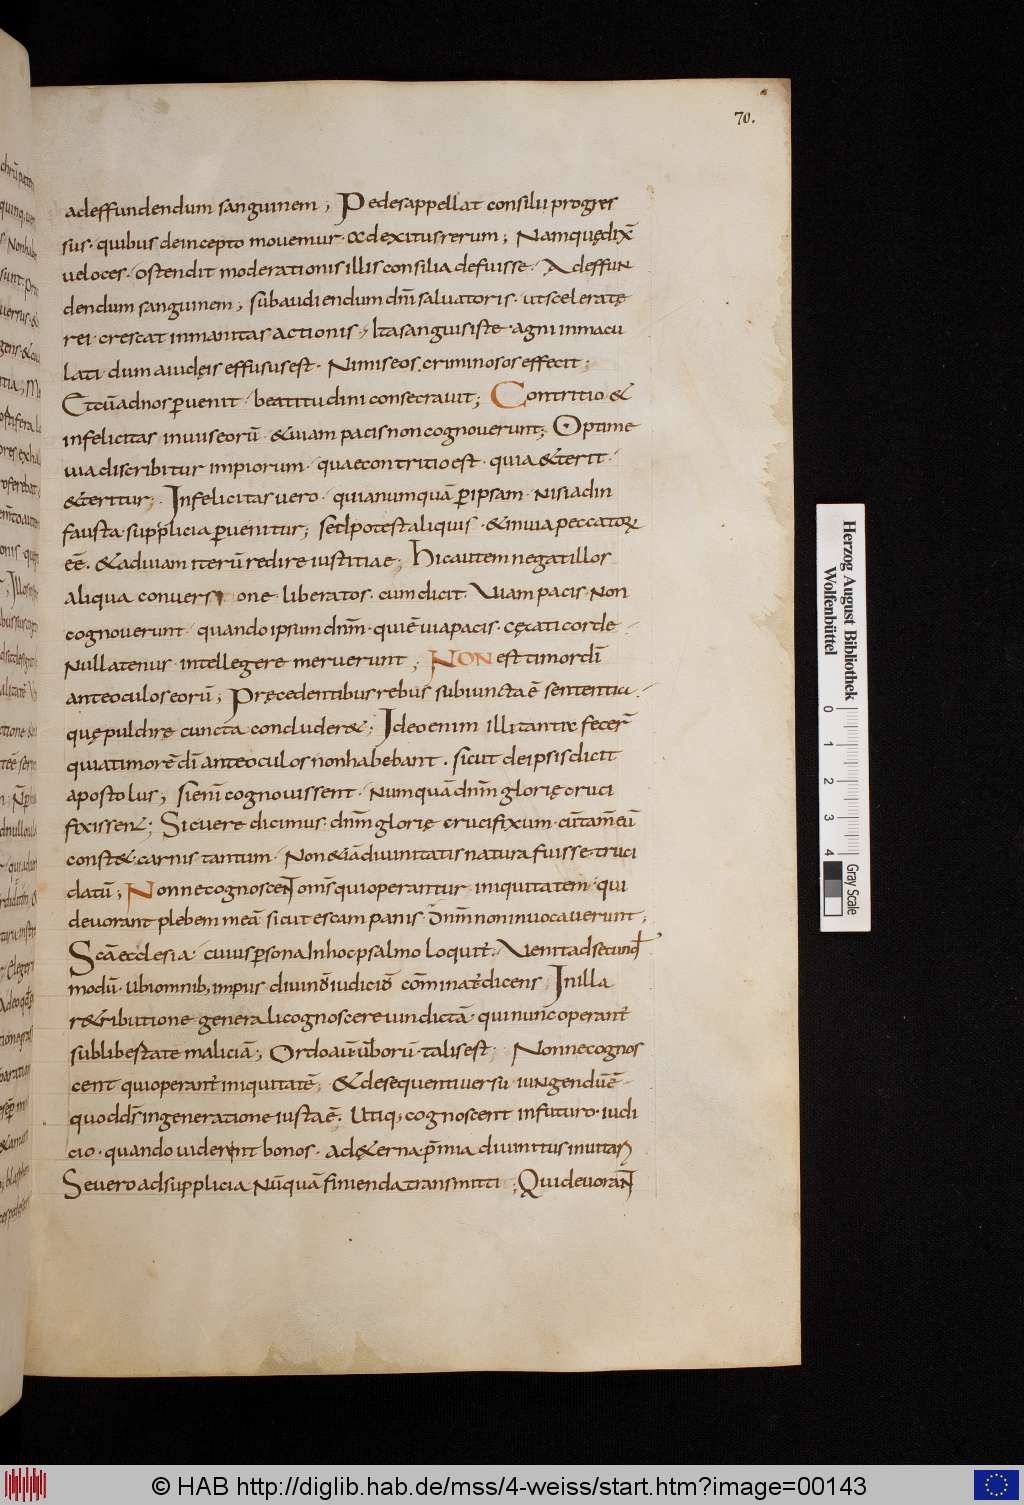 70.
adeffundendum sanguinem; Pedes appellat consilii progres
sus· quibus deincepto movemur· & adexitus rerum; Namquę dix̄
veloces· ostendit moderationis illis consilia defuisse· Adeffun
dendum sanguinem; subaudiendum dn̄i salvatoris· ut sceleratę
rei· crescat inmanitas actionis; Ita sanguis iste· agni inmacu
lati· dum a iudęis effusus est· Nimis eos criminosos effecit;
Et cū ad nos p̄uenit· beatitudini consecravit; Contritio &
infelicitas in viis eorū· & viam pacis non cognoverunt; Optime
via discribitur impiorum· quae contritio est· quia & terit·
& teritur; Infelicitas vero· quia numquā p̄ ipsam· nisi ad in
fausta· supplicia p̄uenitur; sed potest aliquis· & in via peccatorꝝ
eē· & ad viam iterū redire iustitiae; hic autem negat illos
aliqua conversione liberatos· cum dicit· Viam pacis non
cognoverunt· quando ipsum dn̄m· qui ē via pacis· cęcati corde
nullatenus· intellegere meruerunt; NON est timor dī
ante oculos eorū; Pręcedentibus rebus subiuncta ē sententia·
quę pulchre cuncta concluder&; Ideo enim illi tanta fecer̄
quia timorē dī ante oculos non habebant· sicut de ipsis dicit
apostolus; si enī cognovissent· numquā dn̄m glorię cruci
fixissen&; Sic vere dicimus· dn̄m glorię crucifixum· cū tam̄ eū
const& carnis tantum· Non &iā divinitatis natura fuisse· truci
datū; Nonne cognoscent om̄s qui operantur iniquitatem· qui
devorant plebem meā sicut escam panis Dn̄m non invocaverunt;
Sc̄a ecclesia· cuius p̄sona In hoc psalmo loquit̄· Venit ad secund
modū· ubi omnib; impiis divinō iudiciō cōminat̄ dicens In illa
r&ributione generali cognoscere vindictā· qui nunc operant̄
sub libestate maliciā; Ordo aū ūborū· talis est; Nonne cognos
cent qui operant̄ iniquitatē; & de sequenti versu iungendū ē·
quod ds̄ in generatione iusta ē. Utiq; cognoscent in futuro· iudi
cio· quando viderint bonos· ad &erna p̄mia divinitus invitari
Se vero ad supplicia nūquā finienda transmitti; Qui devorant
Herzog August Bibliothek
Wolfenbüttel
0 1 2 3 4
Gray Scale
© HAB http://diglib.hab.de/mss/4-weiss/start.htm?image=00143